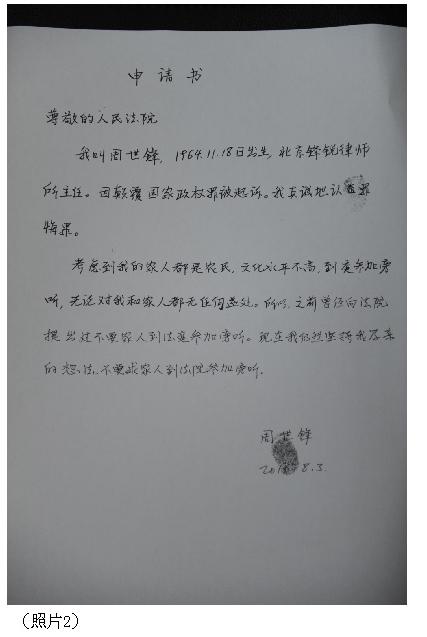 申请书
尊敬的人民法院
我叫周世锋，1964.11.18日出生，北京锋锐律师
所主任。因颠覆国家政权罪被起诉。我真诚地认罪
悔罪。
考虑到我的家人都是农民，文化水平不高，到庭参加旁
听，无论对我和家人都无任何益处。所以，之前曾经向法院
提出过不要家人到法庭参加旁听。现在我仍然坚持我原来
的想法，不要求家人到法院参加旁听.
周世锋
8.3.
（照片2）